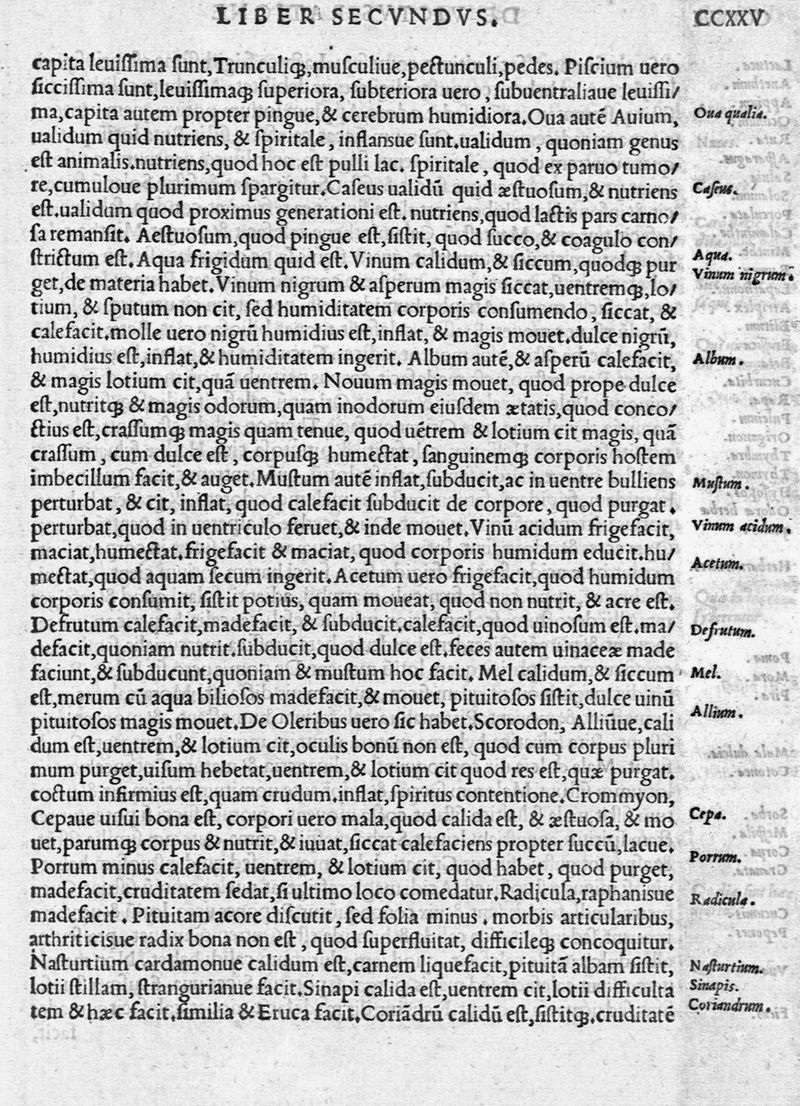 LIBER SECVNDVS. CCXXV
capita leuiſſima ſunt,Trunculiq́;,muſculiue,pectunculi,pedes. Piſcium uero
ſicciſſima ſunt,leuiſſimaq́; ſuperiora, ſubteriora uero, ſubuentraliaue leuiſſi/
ma,capita autem propter pingue,& cerebrum humidiora.Oua autē Auium,
ualidum quid nutriens, & ſpiritale, inflansue ſunt.ualidum, quoniam genus
eſt animalis.nutriens,quod hoc eſt pulli lac. ſpiritale, quod ex paruo tumo/
re,cumuloue plurimum ſpargitur.Caſeus ualidū quid æſtuoſum,& nutriens
eſt.ualidum quod proximus generationi eſt. nutriens,quod lactis pars carno/
ſa remanſit. Aeſtuoſum,quod pingue eſt,ſiſtit, quod ſucco,& coagulo con/
ſtrictum eſt.Aqua frigidum quid eſt.Vinum calidum,& ſiccum,quodq́; pur
get,de materia habet.Vinum nigrum & aſperum magis ſiccat,uentremq́;,lo/
tium, & ſputum non cit, ſed humiditatem corporis conſumendo, ſiccat, &
calefacit.molle uero nigrū humidius eſt,inflat, & magis mouet.dulce nigrū,
humidius eſt,inflat,& humiditatem ingerit. Album autē,& aſperū calefacit,
& magis lotium cit,quā uentrem. Nouum magis mouet, quod prope dulce
eſt,nutritq́; & magis odorum,quam inodorum eiuſdem ætatis,quod conco/
ctius eſt,craſſumq́; magis quam tenue, quod uētrem & lotium cit magis, quā
craſſum, cum dulce eſt, corpuſq́; humectat, ſanguinemq́; corporis hoſtem
imbecillum facit,& auget.Muſtum autē inflat,ſubducit,ac in uentre bulliens
perturbat, & cit, inflat, quod calefacit ſubducit de corpore, quod purgat.
perturbat,quod in uentriculo feruet,& inde mouet.Vinū acidum frigefacit,
maciat,humectat.frigefacit & maciat, quod corporis humidum educit.hu/
mectat,quod aquam ſecum ingerit.Acetum uero frigefacit,quod humidum
corporis conſumit, ſiſtit potius, quam moueat, quod non nutrit, & acre eſt.
Defrutum calefacit,madefacit, & ſubducit.calefacit,quod uinoſum eſt.ma/
defacit,quoniam nutrit.ſubducit,quod dulce eſt.feces autem uinaceæ made
faciunt,& ſubducunt,quoniam & muſtum hoc facit. Mel calidum,& ſiccum
eſt,merum cū aqua bilioſos madefacit,& mouet, pituitoſos ſiſtit,dulce uinū
pituitoſos magis mouet.De Oleribus uero ſic habet.Scorodon, Alliūue,cali
dum eſt,uentrem,& lotium cit,oculis bonū non eſt, quod cum corpus pluri
mum purget,uiſum hebetat,uentrem,& lotium cit quod res eſt,quæ purgat.
coctum infirmius eſt,quam crudum.inflat,ſpiritus contentione.Crommyon,
Cepaue uiſui bona eſt, corpori uero mala,quod calida eſt, & æſtuoſa, & mo
uet,parumq́; corpus & nutrit,& iuuat,ſiccat calefaciens propter ſuccū,lacue.
Porrum minus calefacit, uentrem, & lotium cit, quod habet, quod purget,
madefacit,cruditatem ſedat,ſi ultimo loco comedatur.Radicula,raphanisue
madefacit. Pituitam acore diſcutit, ſed folia minus. morbis articularibus,
arthriticisue radix bona non eſt, quod ſuperfluitat, difficileq́; concoquitur.
Naſturtium cardamonue calidum eſt,carnem liquefacit,pituitā albam ſiſtit,
lotii ſtillam, ſtrangurianue facit.Sinapi calida eſt,uentrem cit,lotii difficulta
tem & hæc facit.ſimilia & Eruca facit.Coriādrū calidū eſt,ſiſtitq́;.cruditatē
Oua qualia.
Caſeus.
Aqua.
Vinum nigrum.
Album.
Muſtum.
Vinum acidum.
Acetum.
Defrutum.
Mel.
Allium.
Cepa.
Porrum.
Radicula.
Naſturtium.
Sinapis.
Coriandrum.